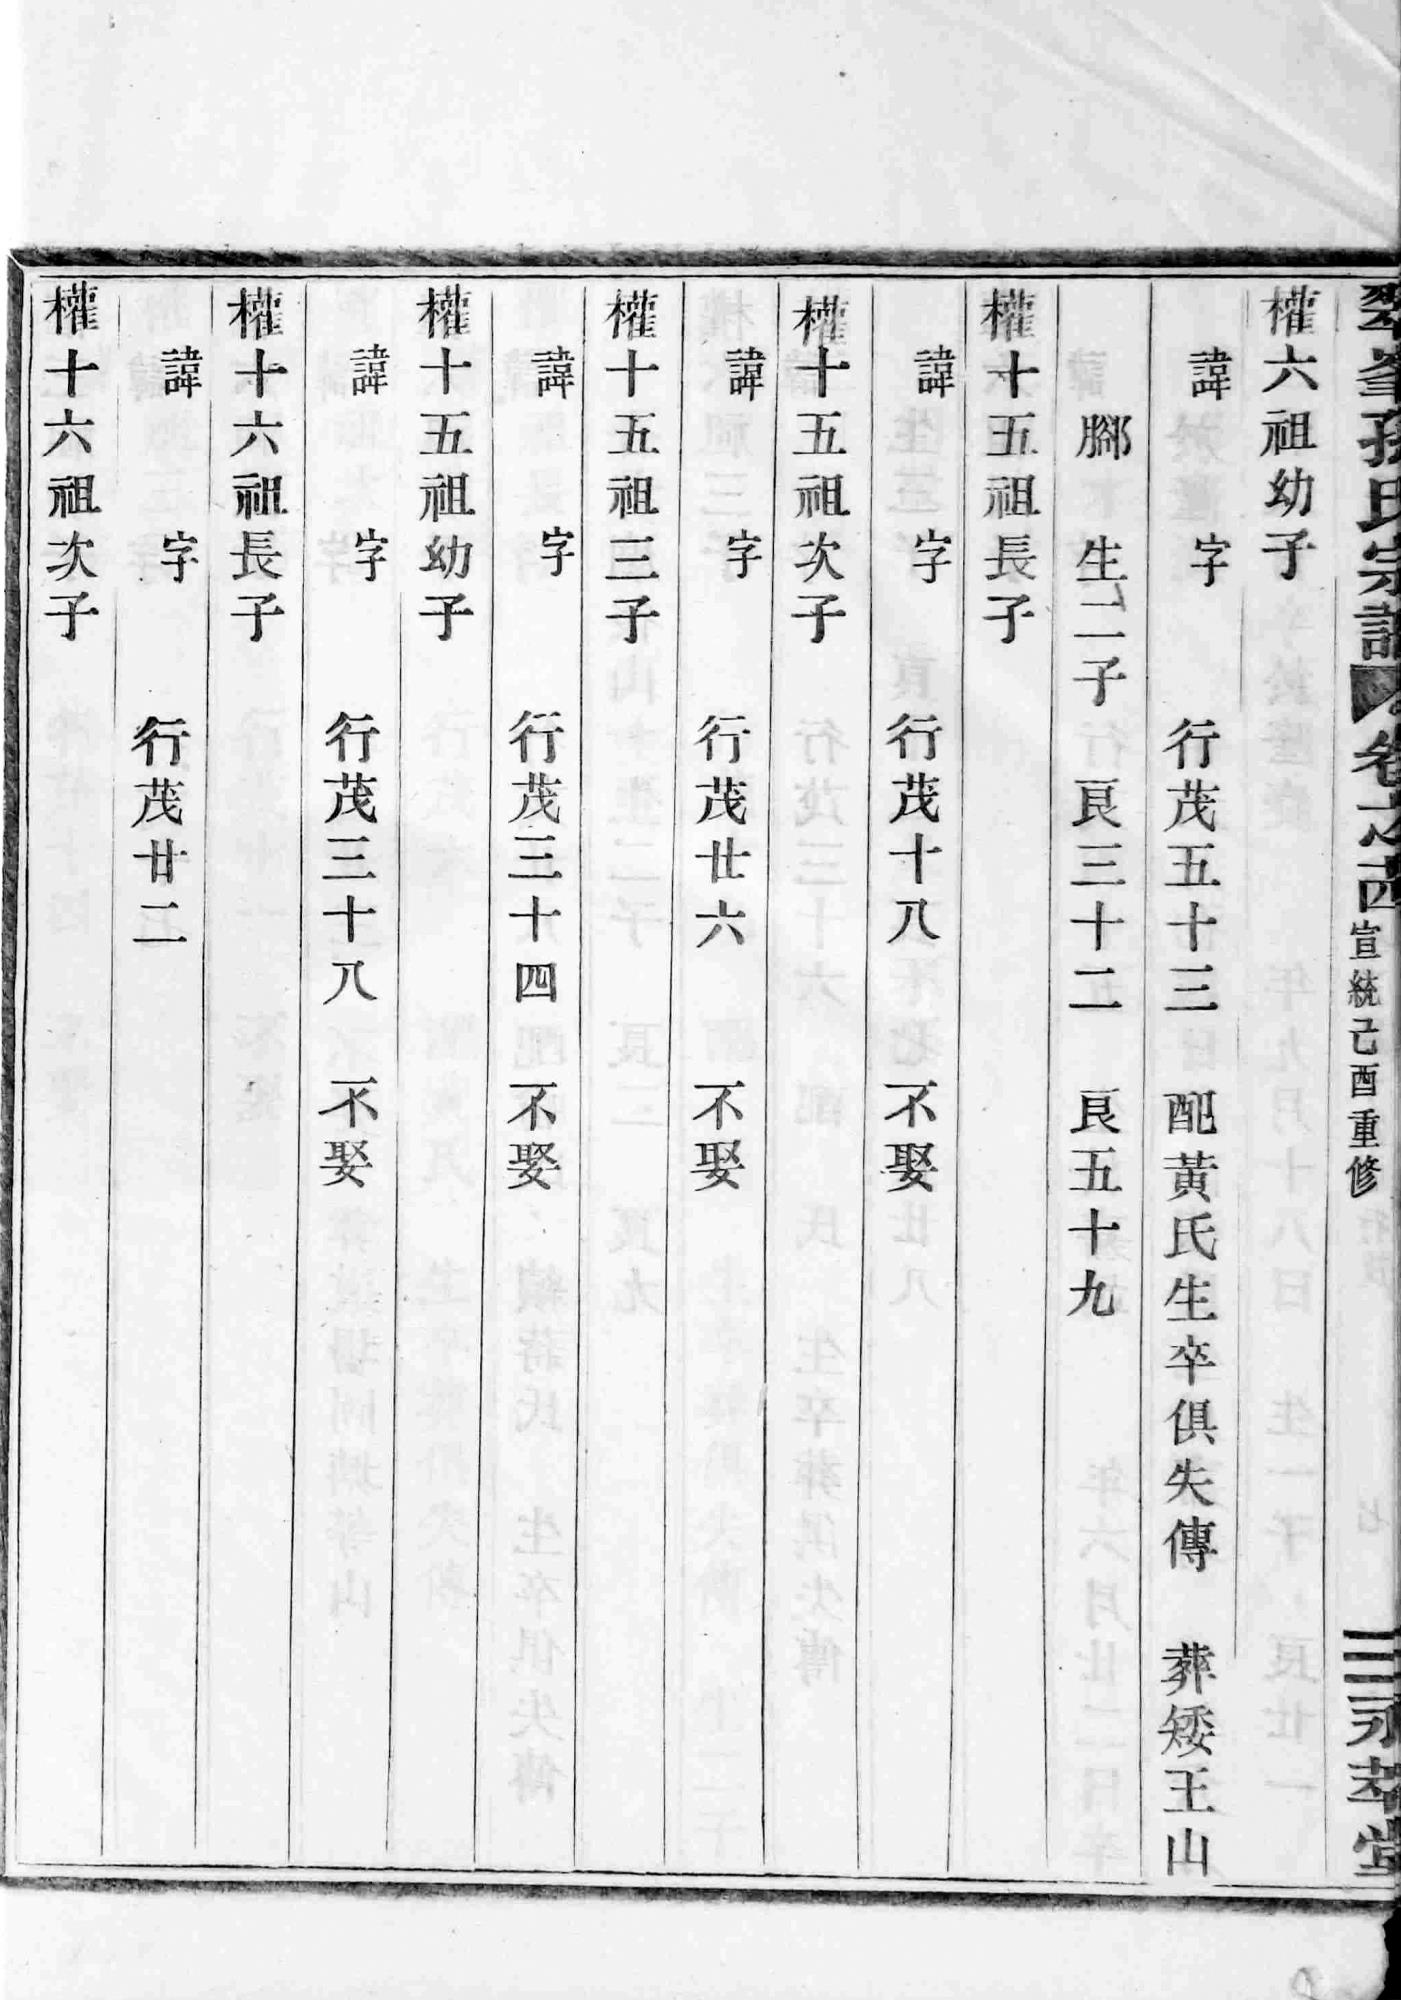 翠峯孫氏宗譜 卷之四 宣統己酉重修 三 永萃堂
權六祖幼子
諱 字 行茂五十三 配黃氏生卒俱失傳 葬矮王山
腳 生二子 艮三十二 艮五十九
權十五祖長子
諱 字 行茂十八 不娶
權十五祖次子
諱 字 行茂廿六 不娶
權十五祖三子
諱 字 行茂三十四 不娶
權十五祖幼子
諱 字 行茂三十八 不娶
權十六祖長子
諱 字 行茂廿二
權十六祖次子